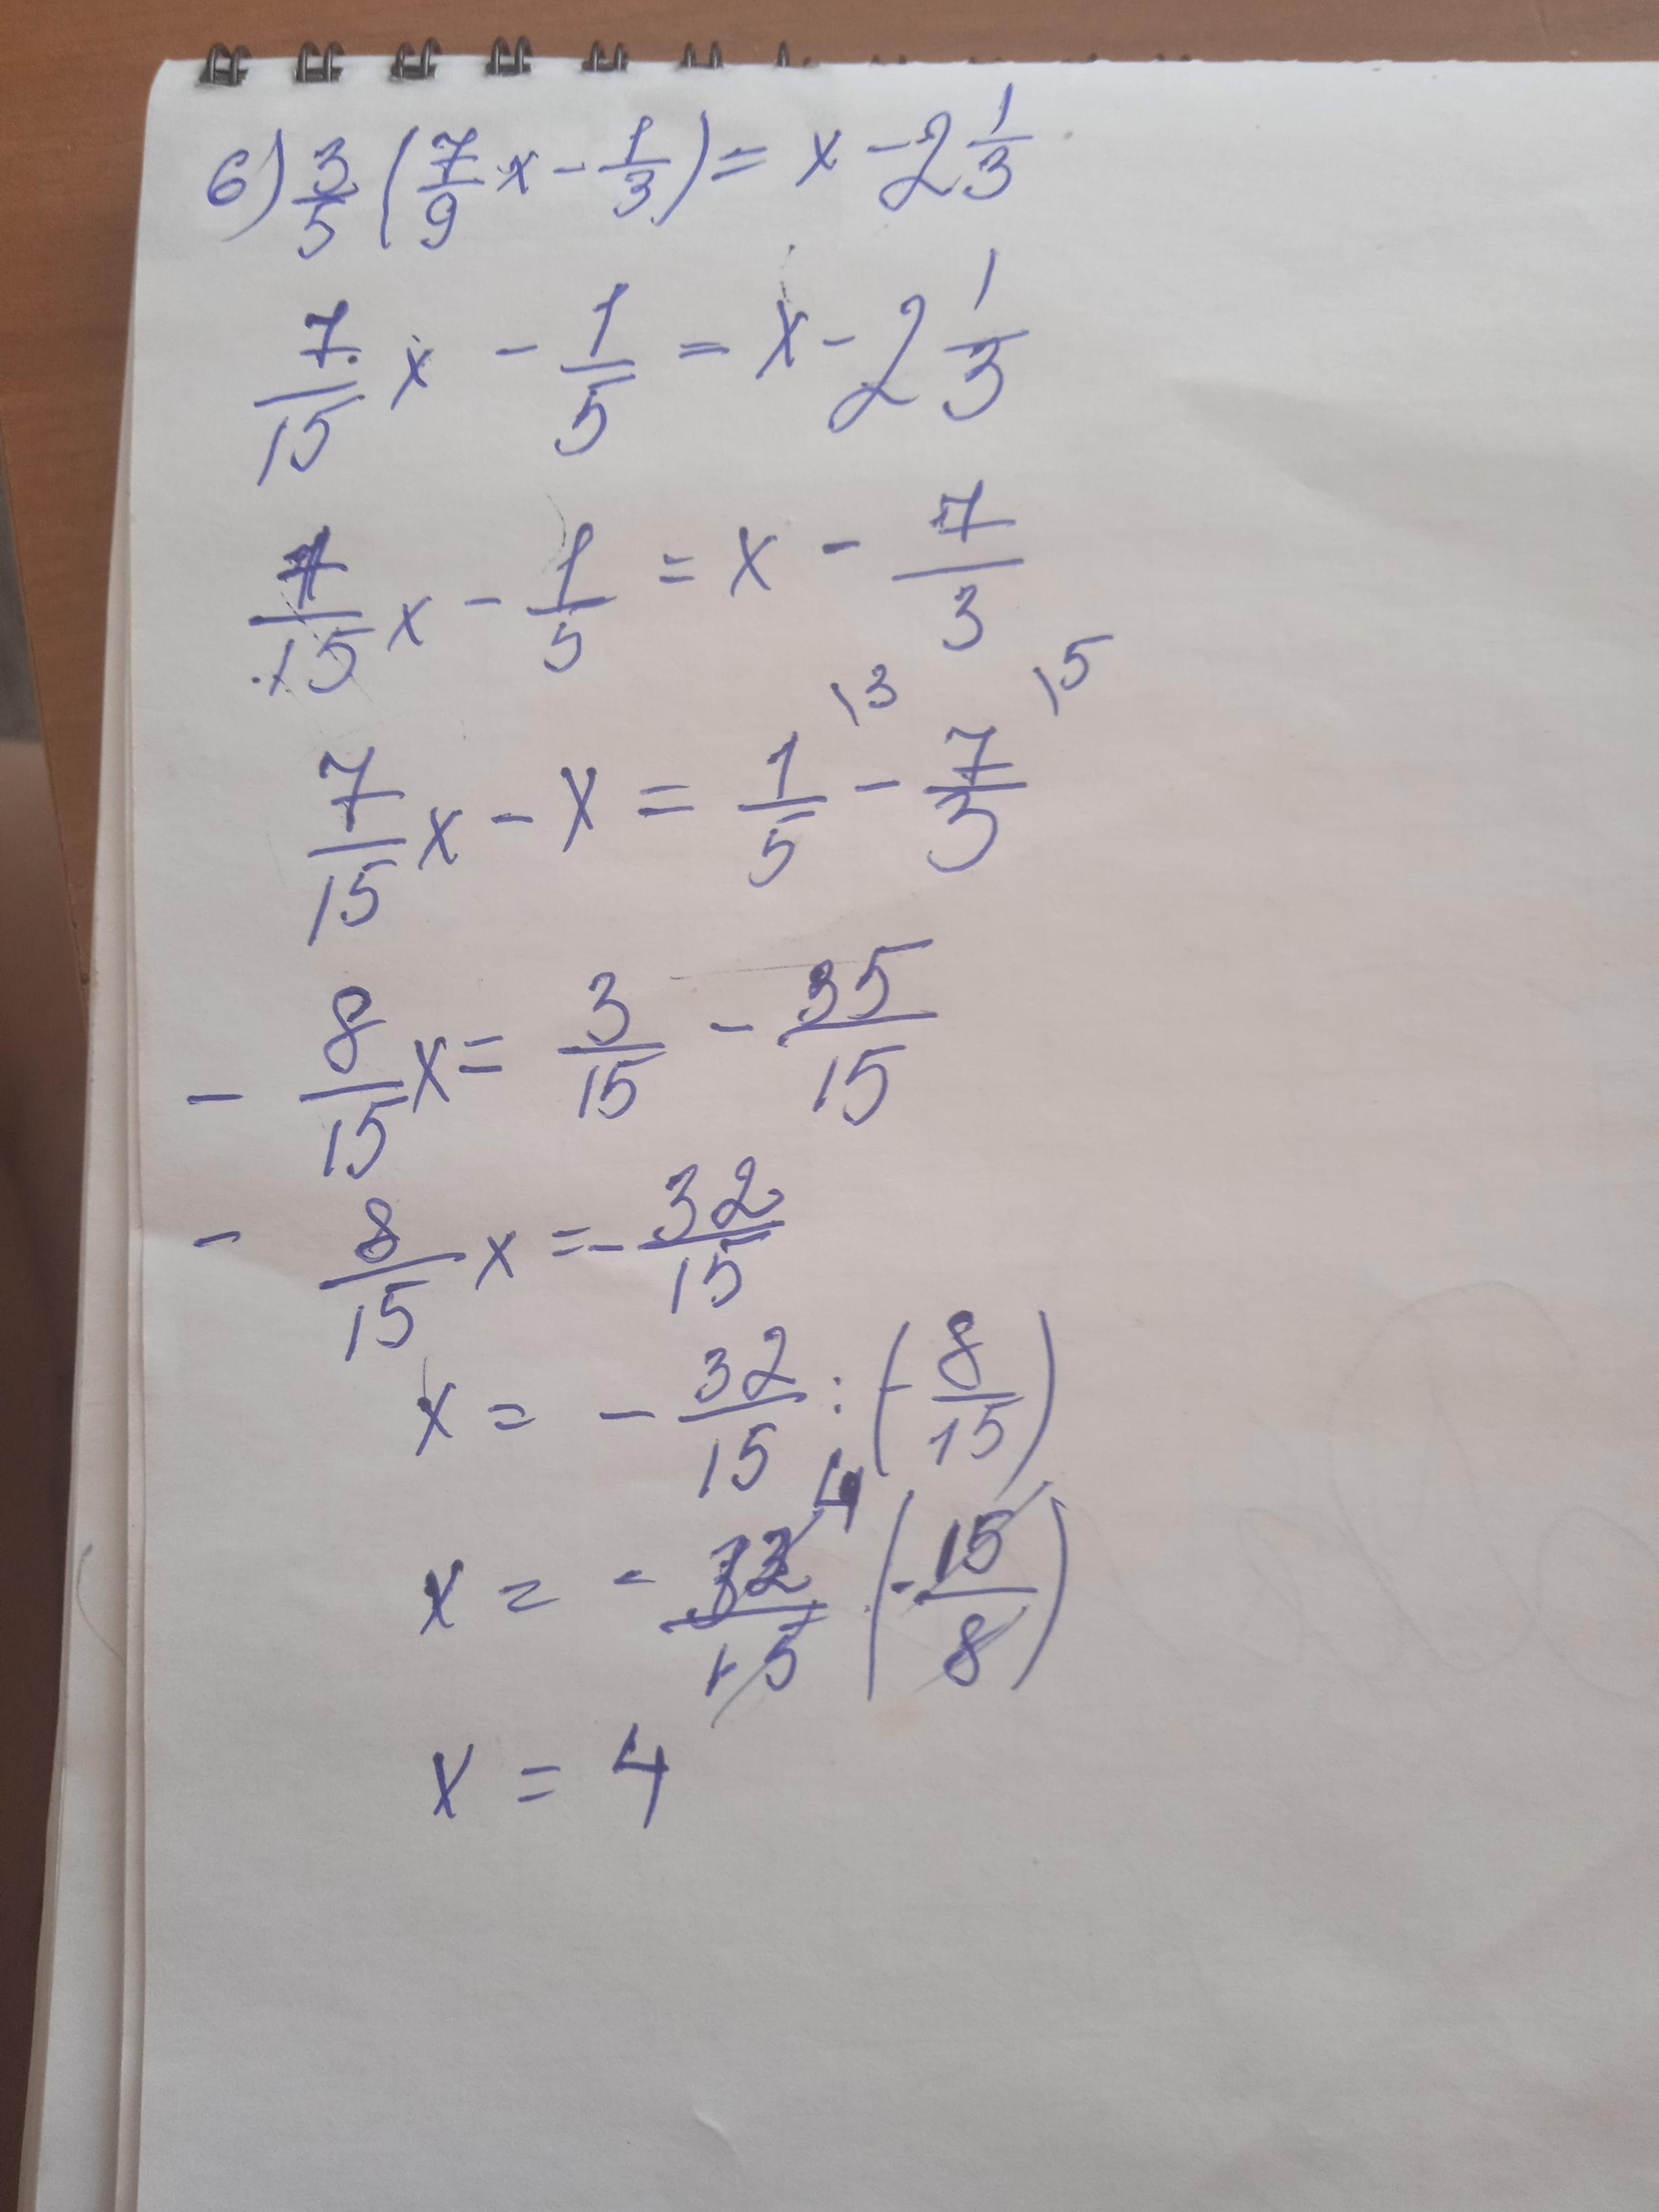 6) 3/5 (7/9 x - 1/3) = x - 2 1/3
7/15 x - 1/5 = x - 2 1/3
7/15 x - 1/5 = x - 7/3
7/15 x - x = 1/5 \3 - 7/3 \5
- 8/15 x = 3/15 - 35/15
- 8/15 x = - 32/15
x = - 32/15 : (- 8/15)
x = - 32/15 4 · (- 15/8)
x = 4